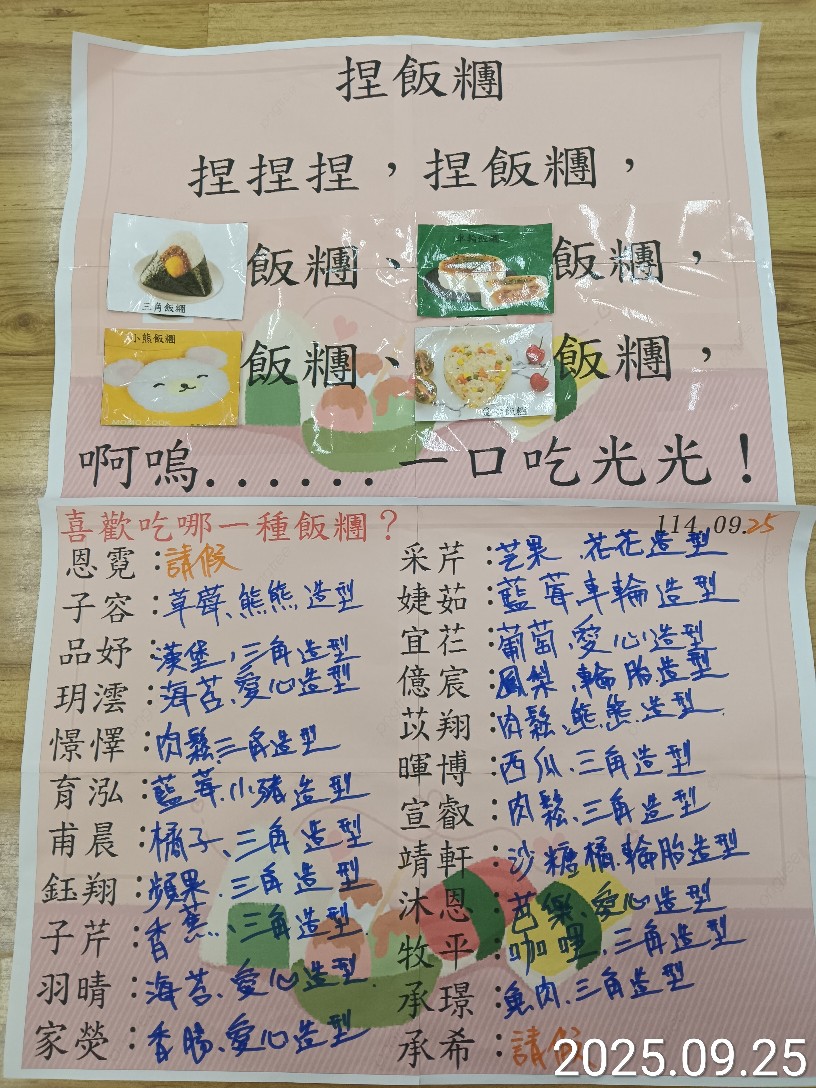 捏飯糰
捏捏捏，捏飯糰，
三角飯糰
飯糰、
車輪飯糰
飯糰，
小熊飯糰
飯糰、
飯糰
飯糰，
啊嗚......一口吃光光！
喜歡吃哪一種飯糰？
114.09.25
恩霓：請假
子容：草莓、熊熊造型
品妤：漢堡、三角造型
玥澐：海苔、愛心造型
憬懌：肉鬆三角造型
育泓：藍莓、小豬造型
甫晨：橘子、三角造型
鈺翔：蘋果、三角造型
子芹：香蕉、三角造型
羽晴：海苔、愛心造型
家熒：香腸、愛心造型
采芹：芒果、花花造型
婕茹：藍莓車輪造型
宜芢：葡萄、愛心造型
億宸：鳳梨、輪胎造型
苡翔：肉鬆、熊熊造型
暉博：西瓜、三角造型
宣叡：肉鬆、三角造型
靖軒：沙糖橘輪胎造型
沐恩：芭樂、愛心造型
牧平：咖哩、三角造型
承璟：魚肉、三角造型
承希：請假
2025.09.25